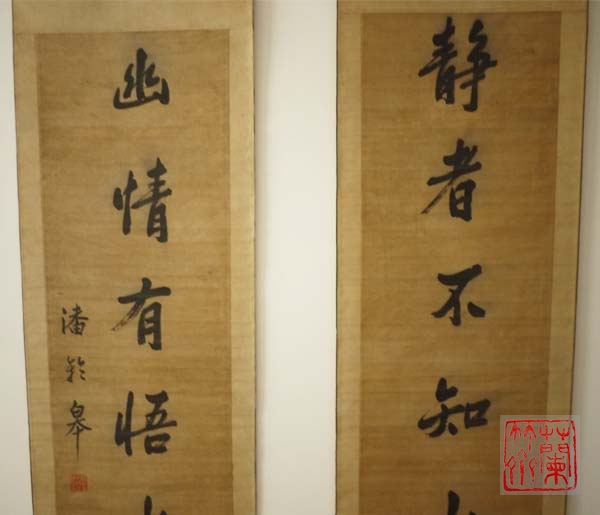 静者不知
幽情有悟
潘龄皋
蘭